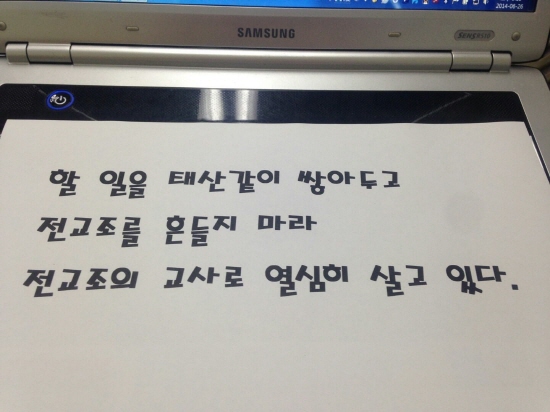 SAMSUNG
2014-06-26
할 일을 태산같이 쌓아두고
전교조를 흔들지 마라
전교조의 교사로 열심히 살고 있다.